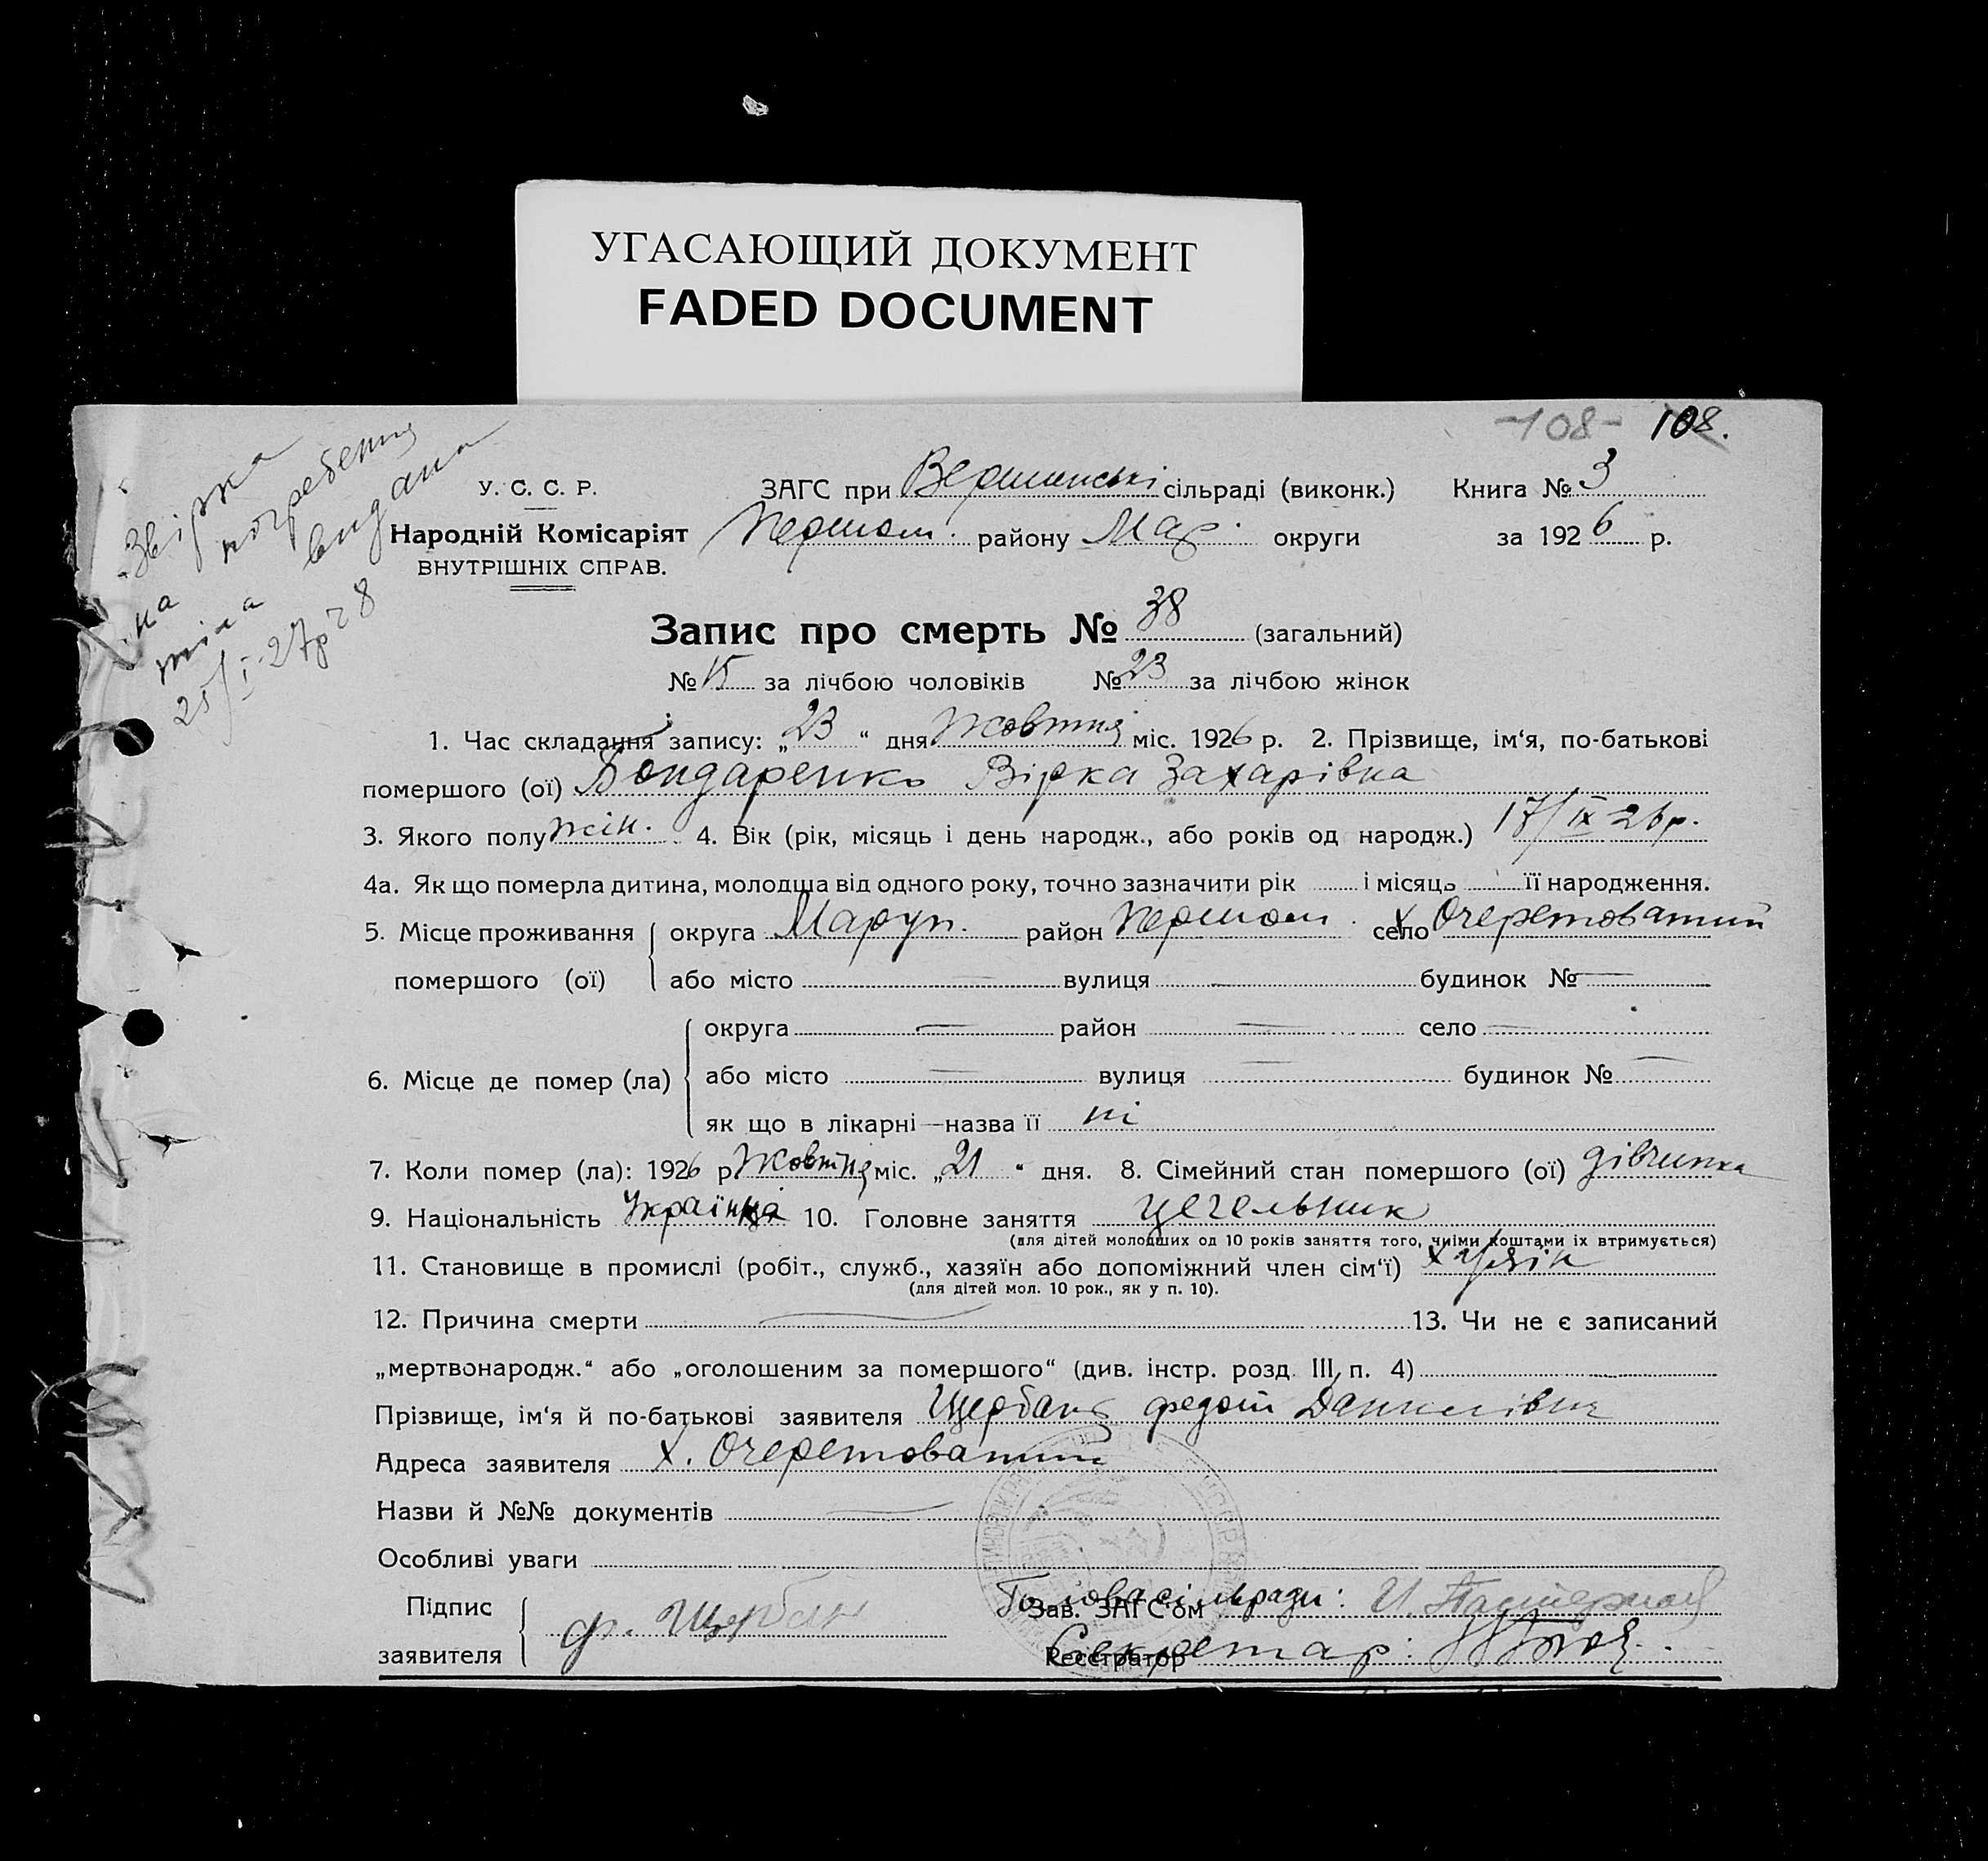 УГАСАЮЩИЙ ДОКУМЕНТ
FADED DOCUMENT
-108- 108.
на погребення
тіла видана
25/I-27р
У. С. С. Р.
Народній Комісаріят
ВНУТРІШНІХ СПРАВ.
ЗАГС при Вершинські сільраді (виконк.) Книга № 3
Першом. району Мар. округи за 1926 р.
Запис про смерть № 38 (загальний)
№ 15 за лічбою чоловіків № 23 за лічбою жінок
1. Час складання запису: „23“ дня Жовтня міс. 1926 р. 2. Прізвище, ім‘я, по-батькові
помершого (ої) Бондаренко Вірка Захарівна
3. Якого полу жін. 4. Вік (рік, місяць і день народж., або років од народж.) 17/IX 26р.
4а. Як що померла дитина, молодша від одного року, точно зазначити рік і місяць її народження.
5. Місце проживання помершого (ої) округа Маруп. район Першом. село х Очеретоватий
або місто — вулиця — будинок № —
6. Місце де помер (ла) округа — район — село —
або місто — вулиця — будинок № —
як що в лікарні—назва її ні
7. Коли помер (ла): 1926 р. Жовтня міс. „21“ дня. 8. Сімейний стан помершого (ої) дівчинка
9. Національність Українца 10. Головне заняття цегельник
(для дітей молодших од 10 років заняття того, чиїми коштами їх втримується)
11. Становище в промислі (робіт., служб., хазяїн або допоміжний член сім‘ї) хазяїн
(для дітей мол. 10 рок., як у п. 10).
12. Причина смерти — 13. Чи не є записаний
„мертвонародж.“ або „оголошеним за помершого“ (див. інстр. розд. III, п. 4)
Прізвище, ім‘я й по-батькові заявителя Щербань Федот
Адреса заявителя х. Очеретоватий
Назви й №№ документів —
Особливі уваги
Підпис заявителя Ф. Щербан
Зав. ЗАГС‘ом Голова сільради:
Реєстратор Секретар: